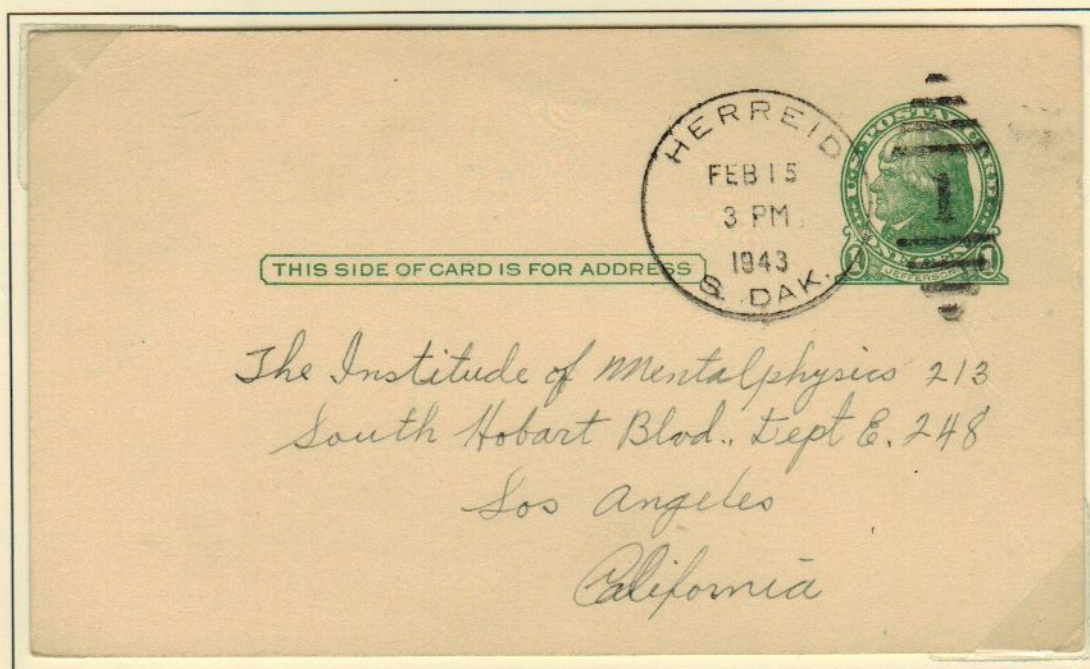 HERREID
FEB 15
3 PM
1943
S. DAK.
U.S. POSTAL CARD
1
ONE CENT
1 JEFFERSON 1
THIS SIDE OF CARD IS FOR ADDRESS
The Institude of Mentalphysics 213
South Hobart Blvd., Dept E. 248
Los Angeles
California